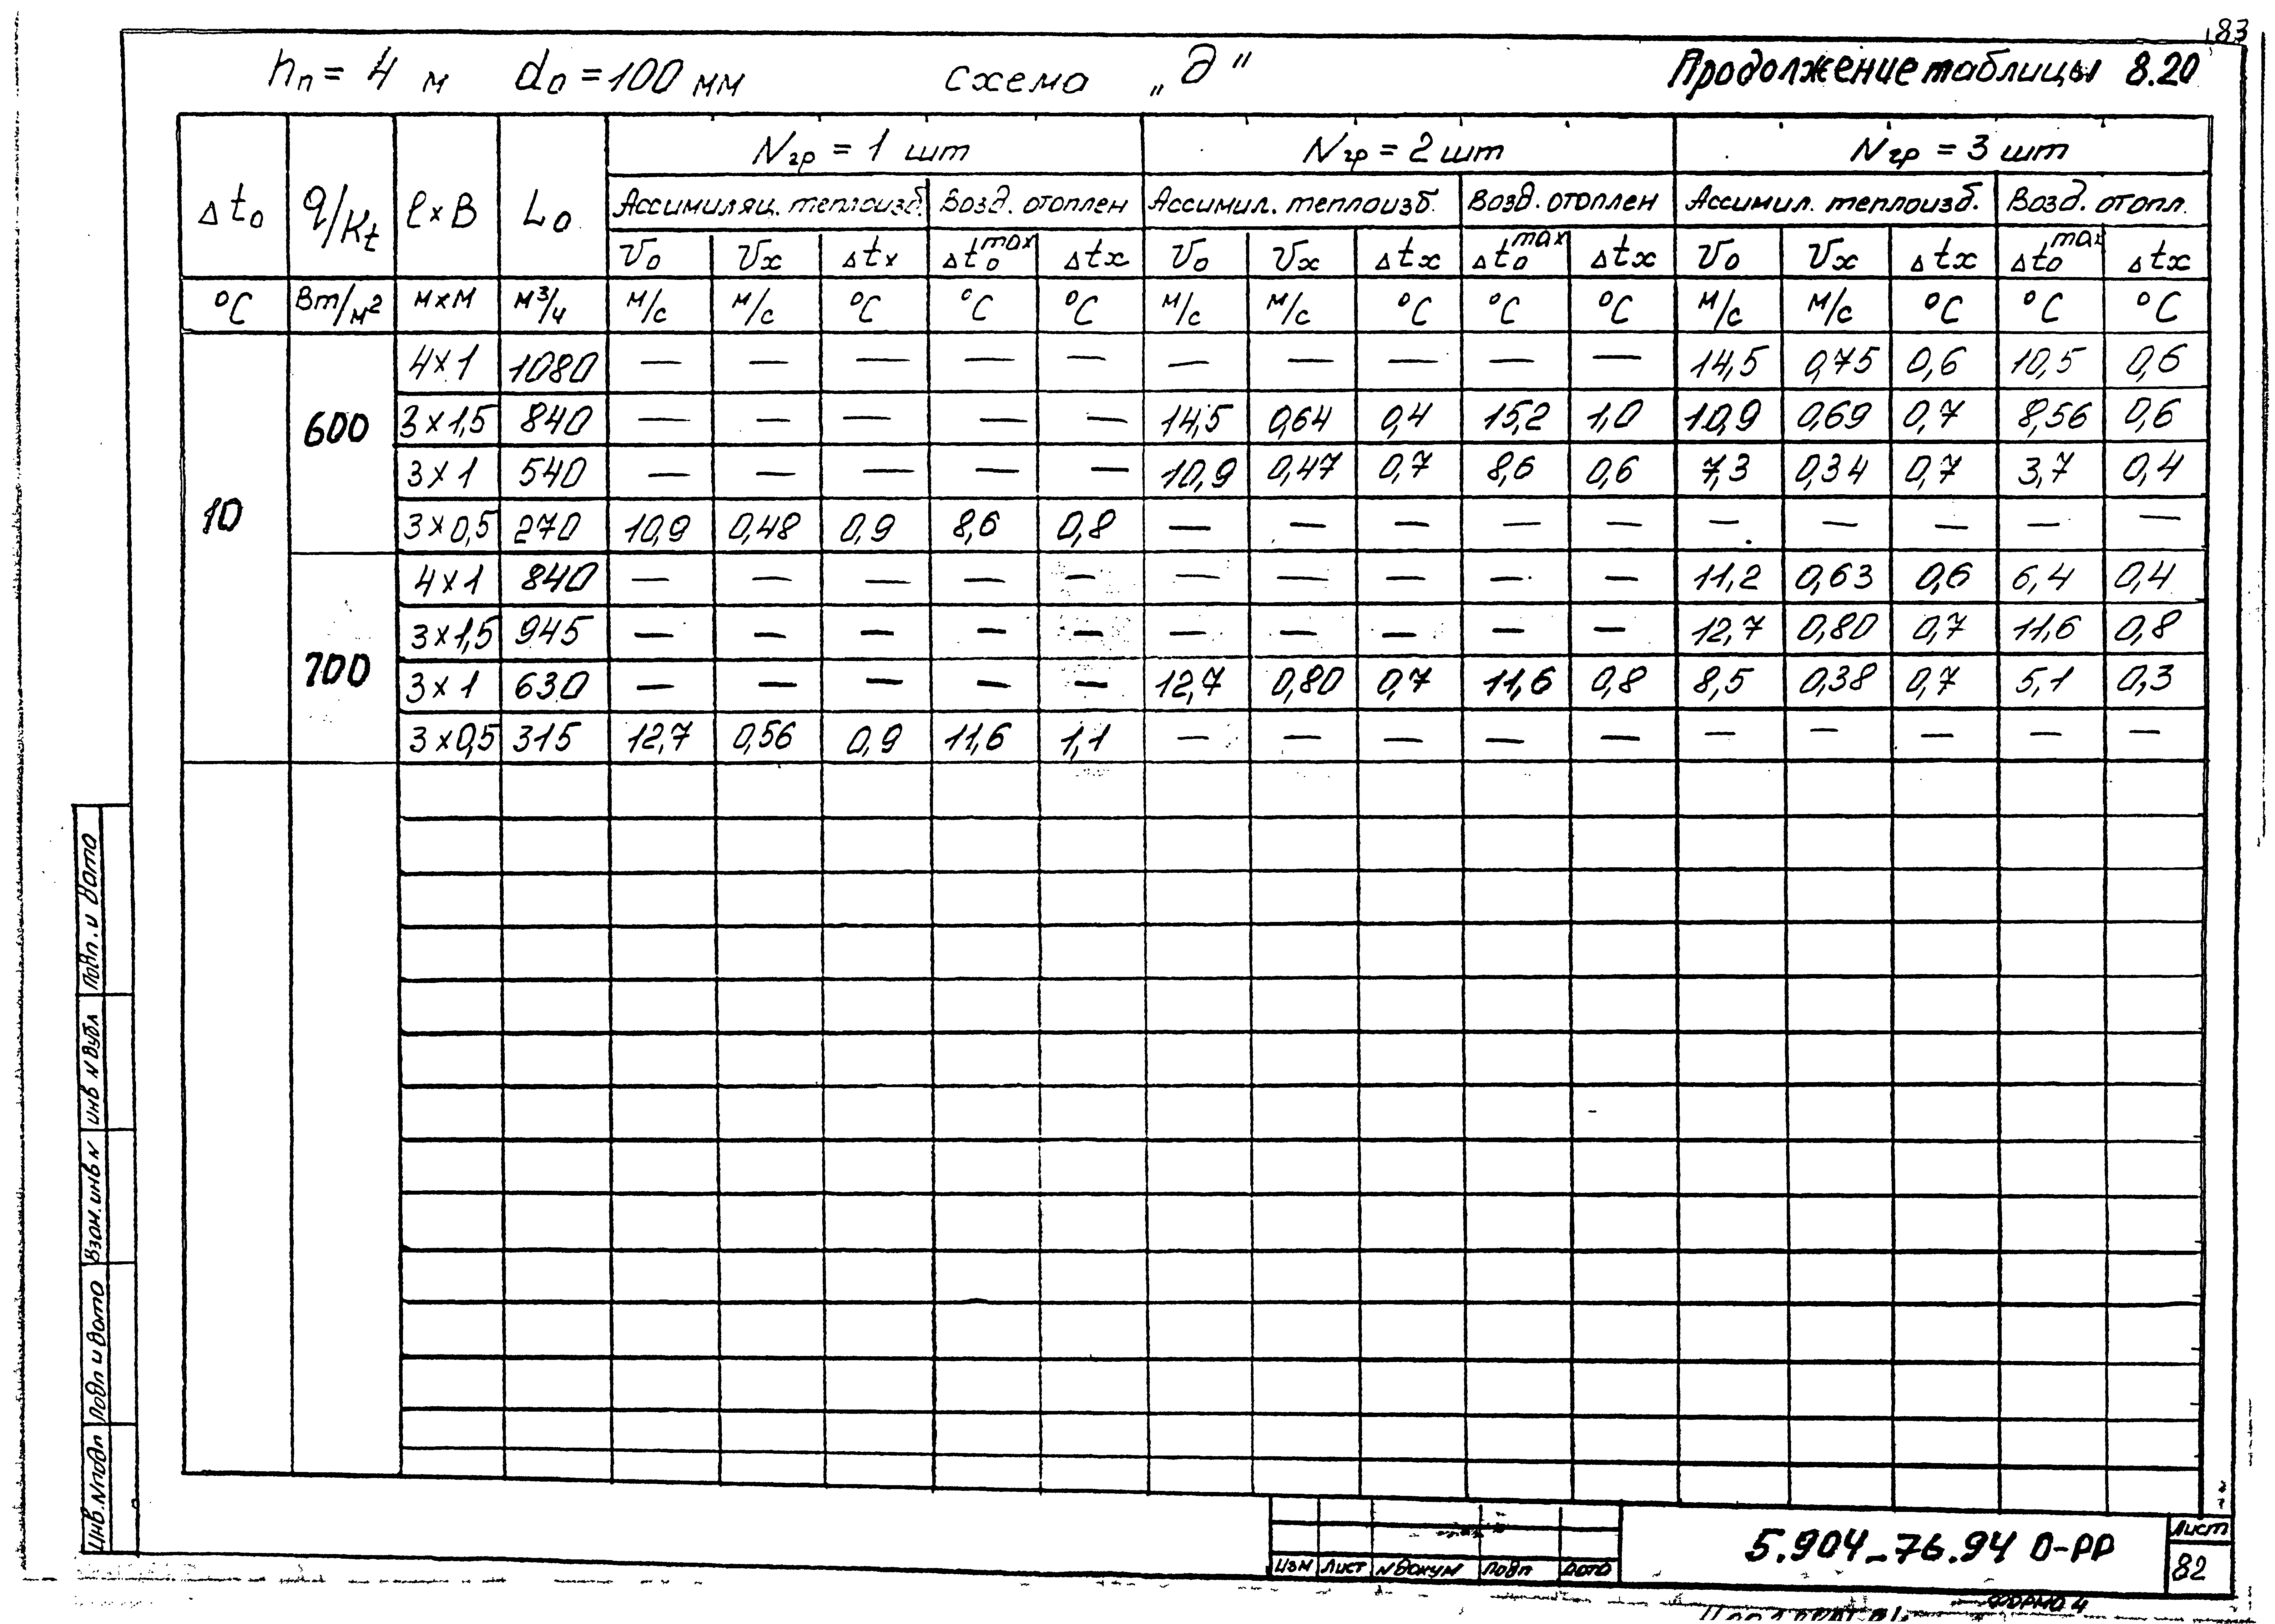 83
hп = 4 м d₀ = 100 мм схема „д" Продолжение таблицы 8.20
Δt₀ q/Kt ℓ×B L₀ Nгр = 1 шт Nгр = 2 шт Nгр = 3 шт
Ассимиляц. теплоизб. Возд. отоплен Ассимил. теплоизб. Возд. отоплен Ассимил. теплоизб. Возд. отопл.
V₀ Vx Δtx Δt₀max Δtx V₀ Vx Δtx Δt₀max Δtx V₀ Vx Δtx Δt₀max Δtx
°C Вт/м² м×м м³/ч м/с м/с °C °C °C м/с м/с °C °C °C м/с м/с °C °C °C
10 600 4×1 1080 — — — — — — — — — — 14,5 0,75 0,6 10,5 0,6
3×1,5 840 — — — — — 14,5 0,64 0,4 15,2 1,0 10,9 0,69 0,7 8,56 0,6
3×1 540 — — — — — 10,9 0,47 0,7 8,6 0,6 7,3 0,34 0,7 3,7 0,4
3×0,5 270 10,9 0,48 0,9 8,6 0,8 — — — — — — — — — —
700 4×1 840 — — — — — — — — — — 11,2 0,63 0,6 6,4 0,4
3×1,5 945 — — — — — — — — — — 12,7 0,80 0,7 11,6 0,8
3×1 630 — — — — — 12,7 0,80 0,7 11,6 0,8 8,5 0,38 0,7 5,1 0,3
3×0,5 315 12,7 0,56 0,9 11,6 1,1 — — — — — — — — — —
Подп. и дата
инв N дубл
Взам. инв N
Подп и дата
Инв. N подп
Изм Лист N докум Подп Дата
5.904-76.94 0-РР
Лист
82
Формат 4